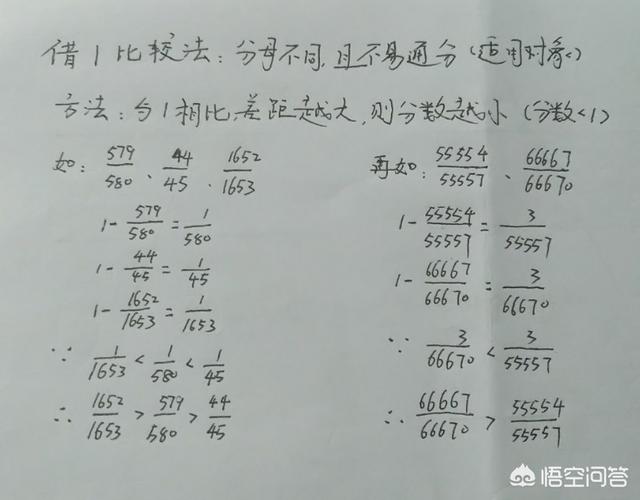 借1比较法：分母不同，且不易通分（适用对象）
方法：与1相比差距越大，则分数越小（分数<1）
如：579/580、44/45、1652/1653
1-579/580=1/580
1-44/45=1/45
1-1652/1653=1/1653
∵ 1/1653<1/580<1/45
∴ 1652/1653>579/580>44/45
再如：55554/55557、66667/66670
1-55554/55557=3/55557
1-66667/66670=3/66670
∵ 3/66670<3/55557
∴ 66667/66670>55554/55557
悟空问答